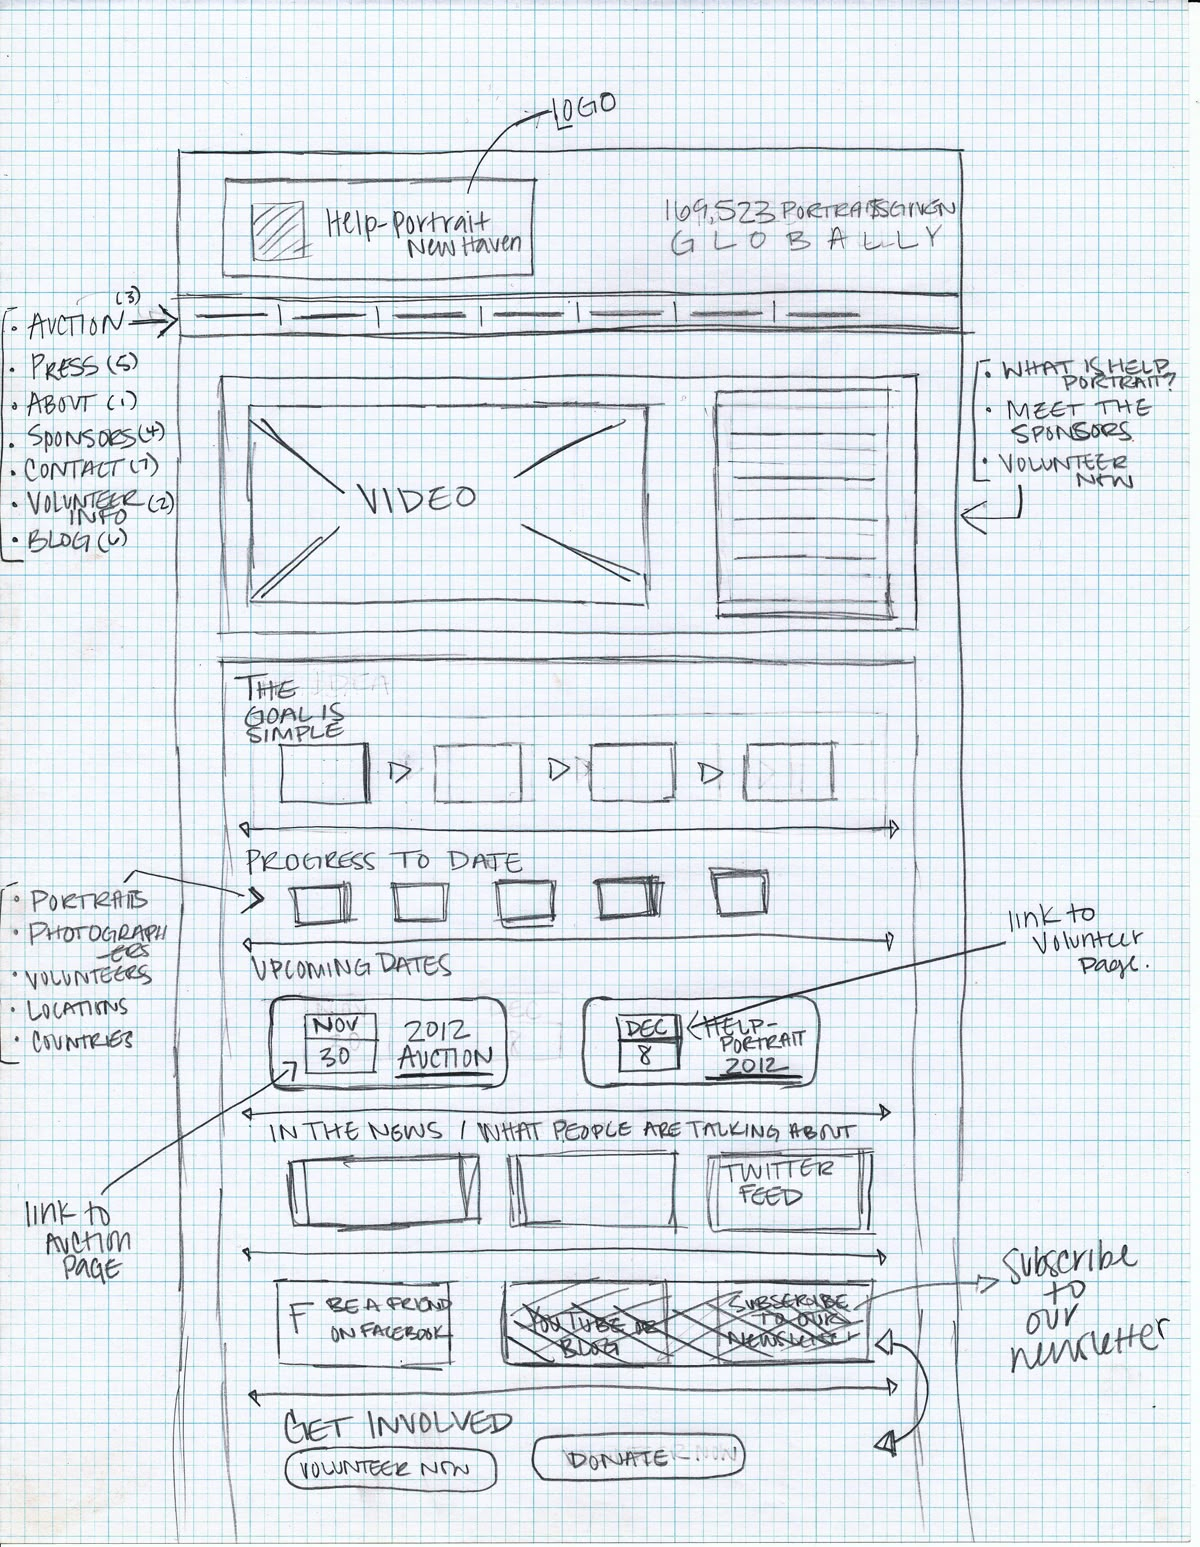 LOGO
Help-Portrait
New Haven
169,523 PORTRAITS GIVEN
GLOBALLY
(3)
• AUCTION
• PRESS (5)
• ABOUT (1)
• SPONSORS (4)
• CONTACT (7)
• VOLUNTEER (2)
INFO
• BLOG (6)
• WHAT IS HELP
PORTRAIT?
• MEET THE
SPONSORS
• VOLUNTEER
NOW
VIDEO
THE
GOAL IS
SIMPLE
PROGRESS TO DATE
• PORTRAITS
• PHOTOGRAPH
ERS
• VOLUNTEERS
• LOCATIONS
• COUNTRIES
link to
Volunteer
page.
UPCOMING DATES
NOV
30
2012
AUCTION
DEC
8
HELP-
PORTRAIT
2012
IN THE NEWS / WHAT PEOPLE ARE TALKING ABOUT
TWITTER
FEED
link to
AUCTION
PAGE
F BE A FRIEND
ON FACEBOOK
YOUTUBE OR
BLOG
SUBSCRIBE
TO OUR
NEWSLETTER
Subscribe
to
our
newsletter
GET INVOLVED
VOLUNTEER NOW
DONATE